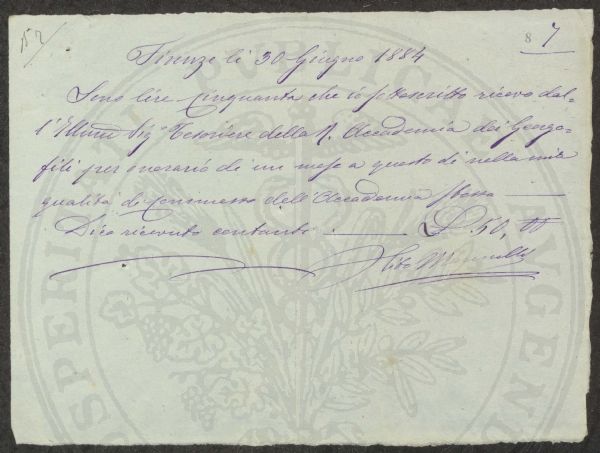 8 7
Firenze li 30 Giugno 1884
Sono lire Cinquanta che io sottoscritto ricevo dal-
l'Illmo Sigr Tesoriere della R. Accademia dei Georgo-
fili per onorario di un mese a questo dì nella mia
qualità di Commesso dell'Accademia stessa
Dico ricevuto contante. L. 50,00
PUBLICAE
PROSPERITATI
AUGENDAE